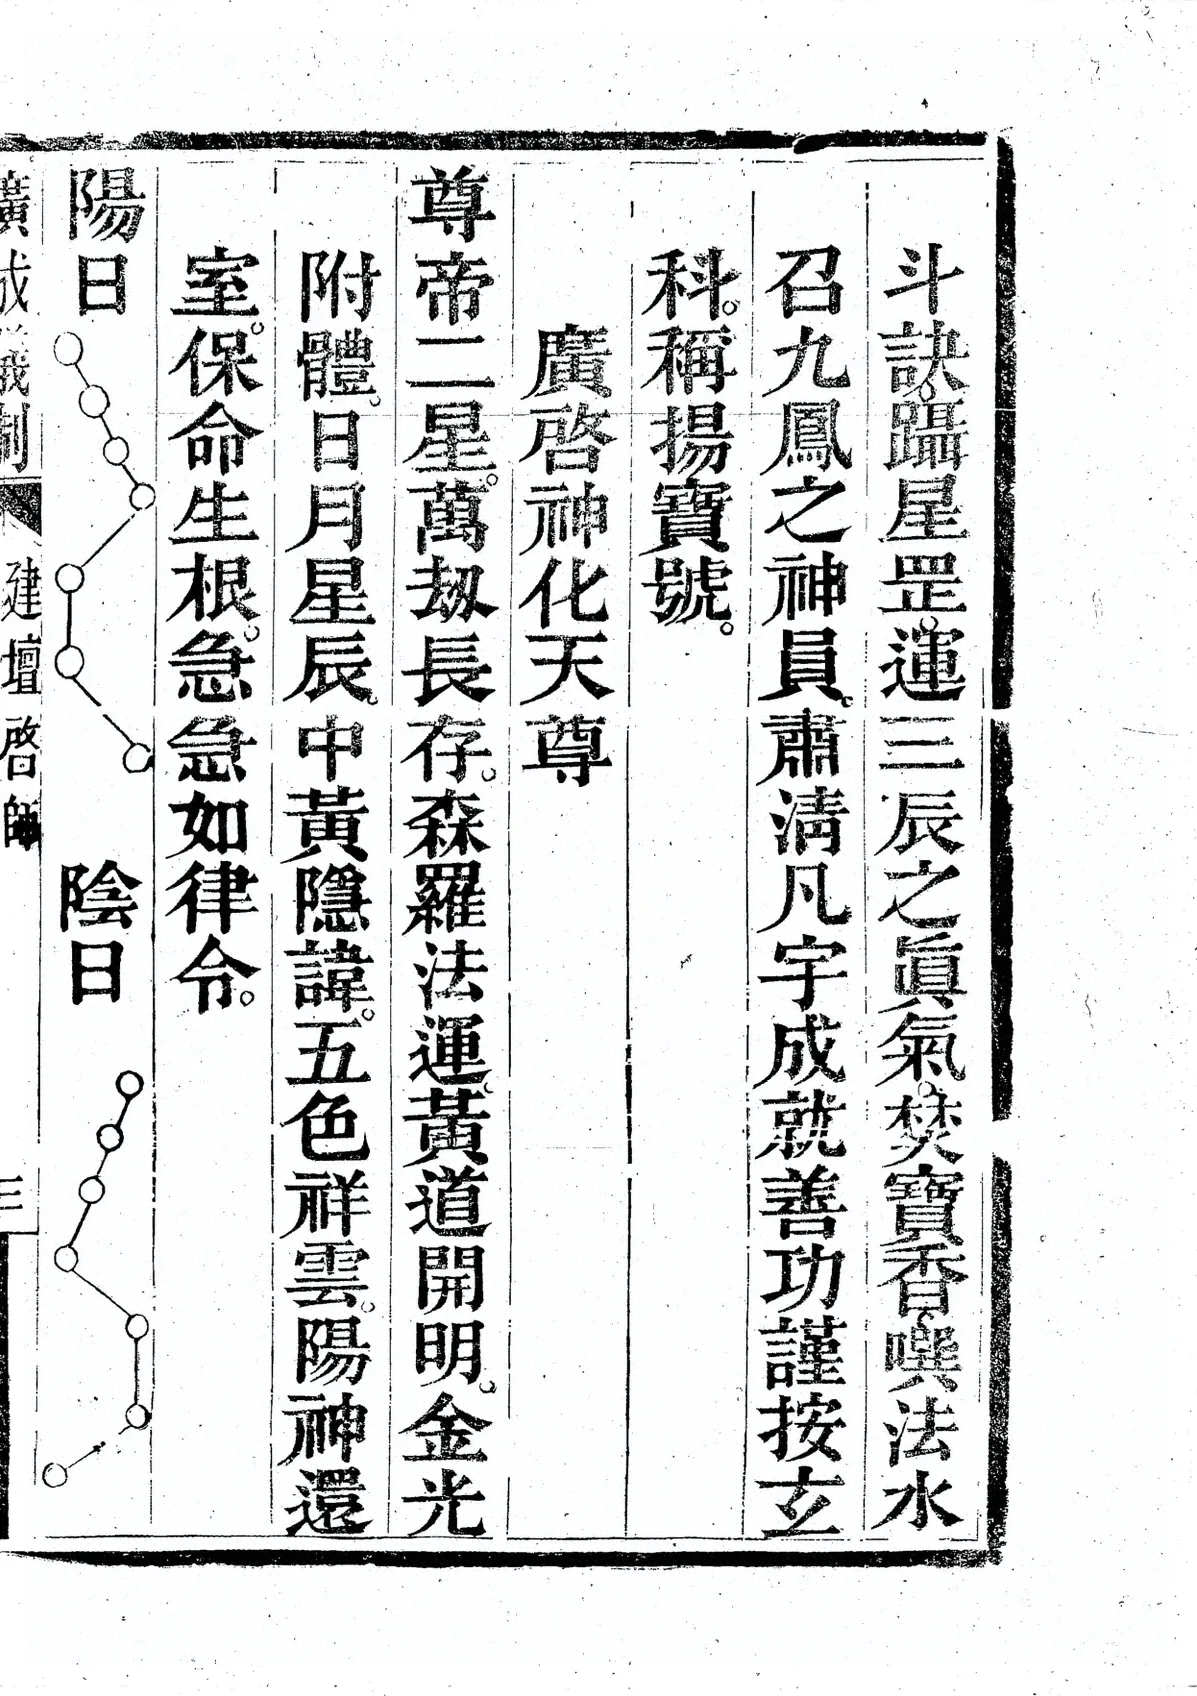 斗訣。躡星罡。運三辰之眞氣。焚寶香。噀法水
召九鳳之神員。肅淸凡宇成就善功謹按玄
科。稱揚寶號。
廣啓神化天尊
尊帝二星。萬劫長存。森羅法運。黃道開明。金光
附體。日月星辰。中黃隱諱。五色祥雲。陽神還
室。保命生根。急急如律令。
陽日
陰日
廣成儀制
建壇啓師
三